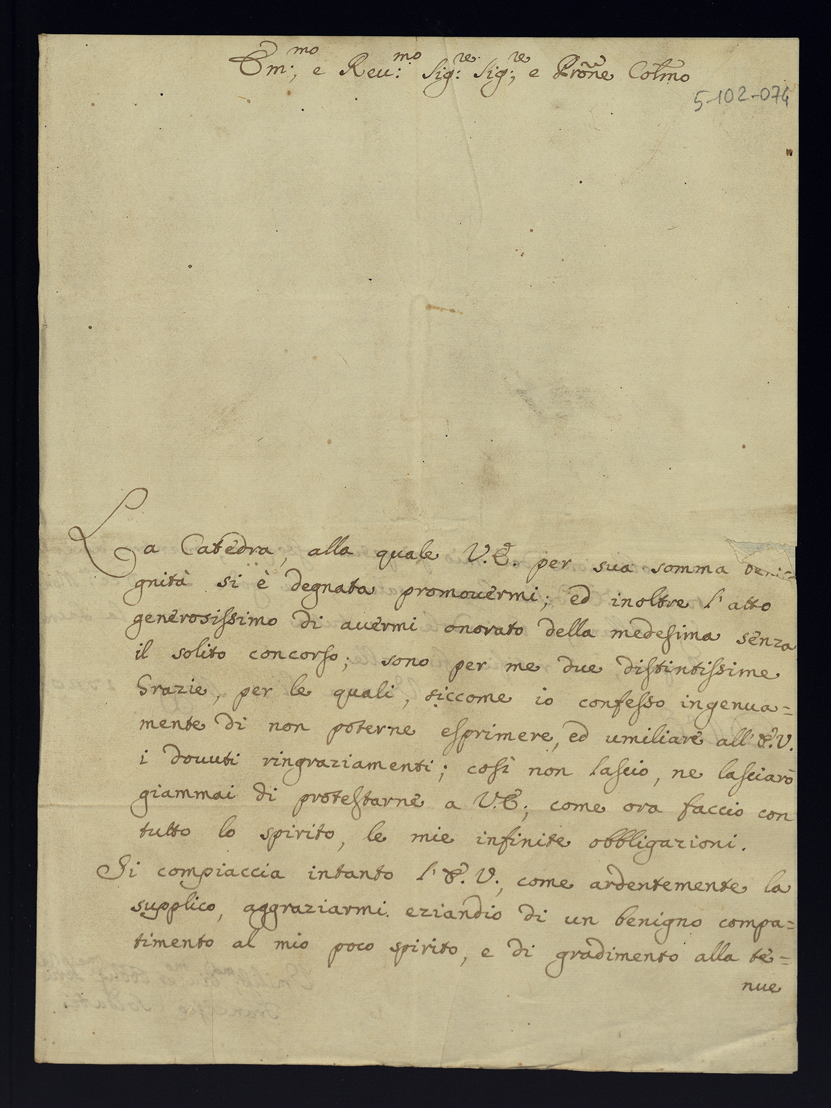 Em:mo, e Reu:mo Sig:re Sig:re, e Prõne Colmo
5-102-074
La Catedra, alla quale V.E. per sua somma beni=
gnità si è degnata promouermi; ed inoltre l'atto
generosissimo di auermi onorato della medesima senza
il solito concorso; sono per me due distintissime
Grazie, per le quali, siccome io confesso ingenua=
mente di non poterne esprimere, ed umiliare all'E.V.
i douuti ringraziamenti; così non lascio, ne lasciarò
giammai di protestarne a V.E; come ora faccio con
tutto lo spirito, le mie infinite obbligazioni.
Si compiaccia intanto l'E.V., come ardentemente la
supplico, aggraziarmi eziandio di un benigno compa=
timento al mio poco spirito, e di gradimento alla te=
nue